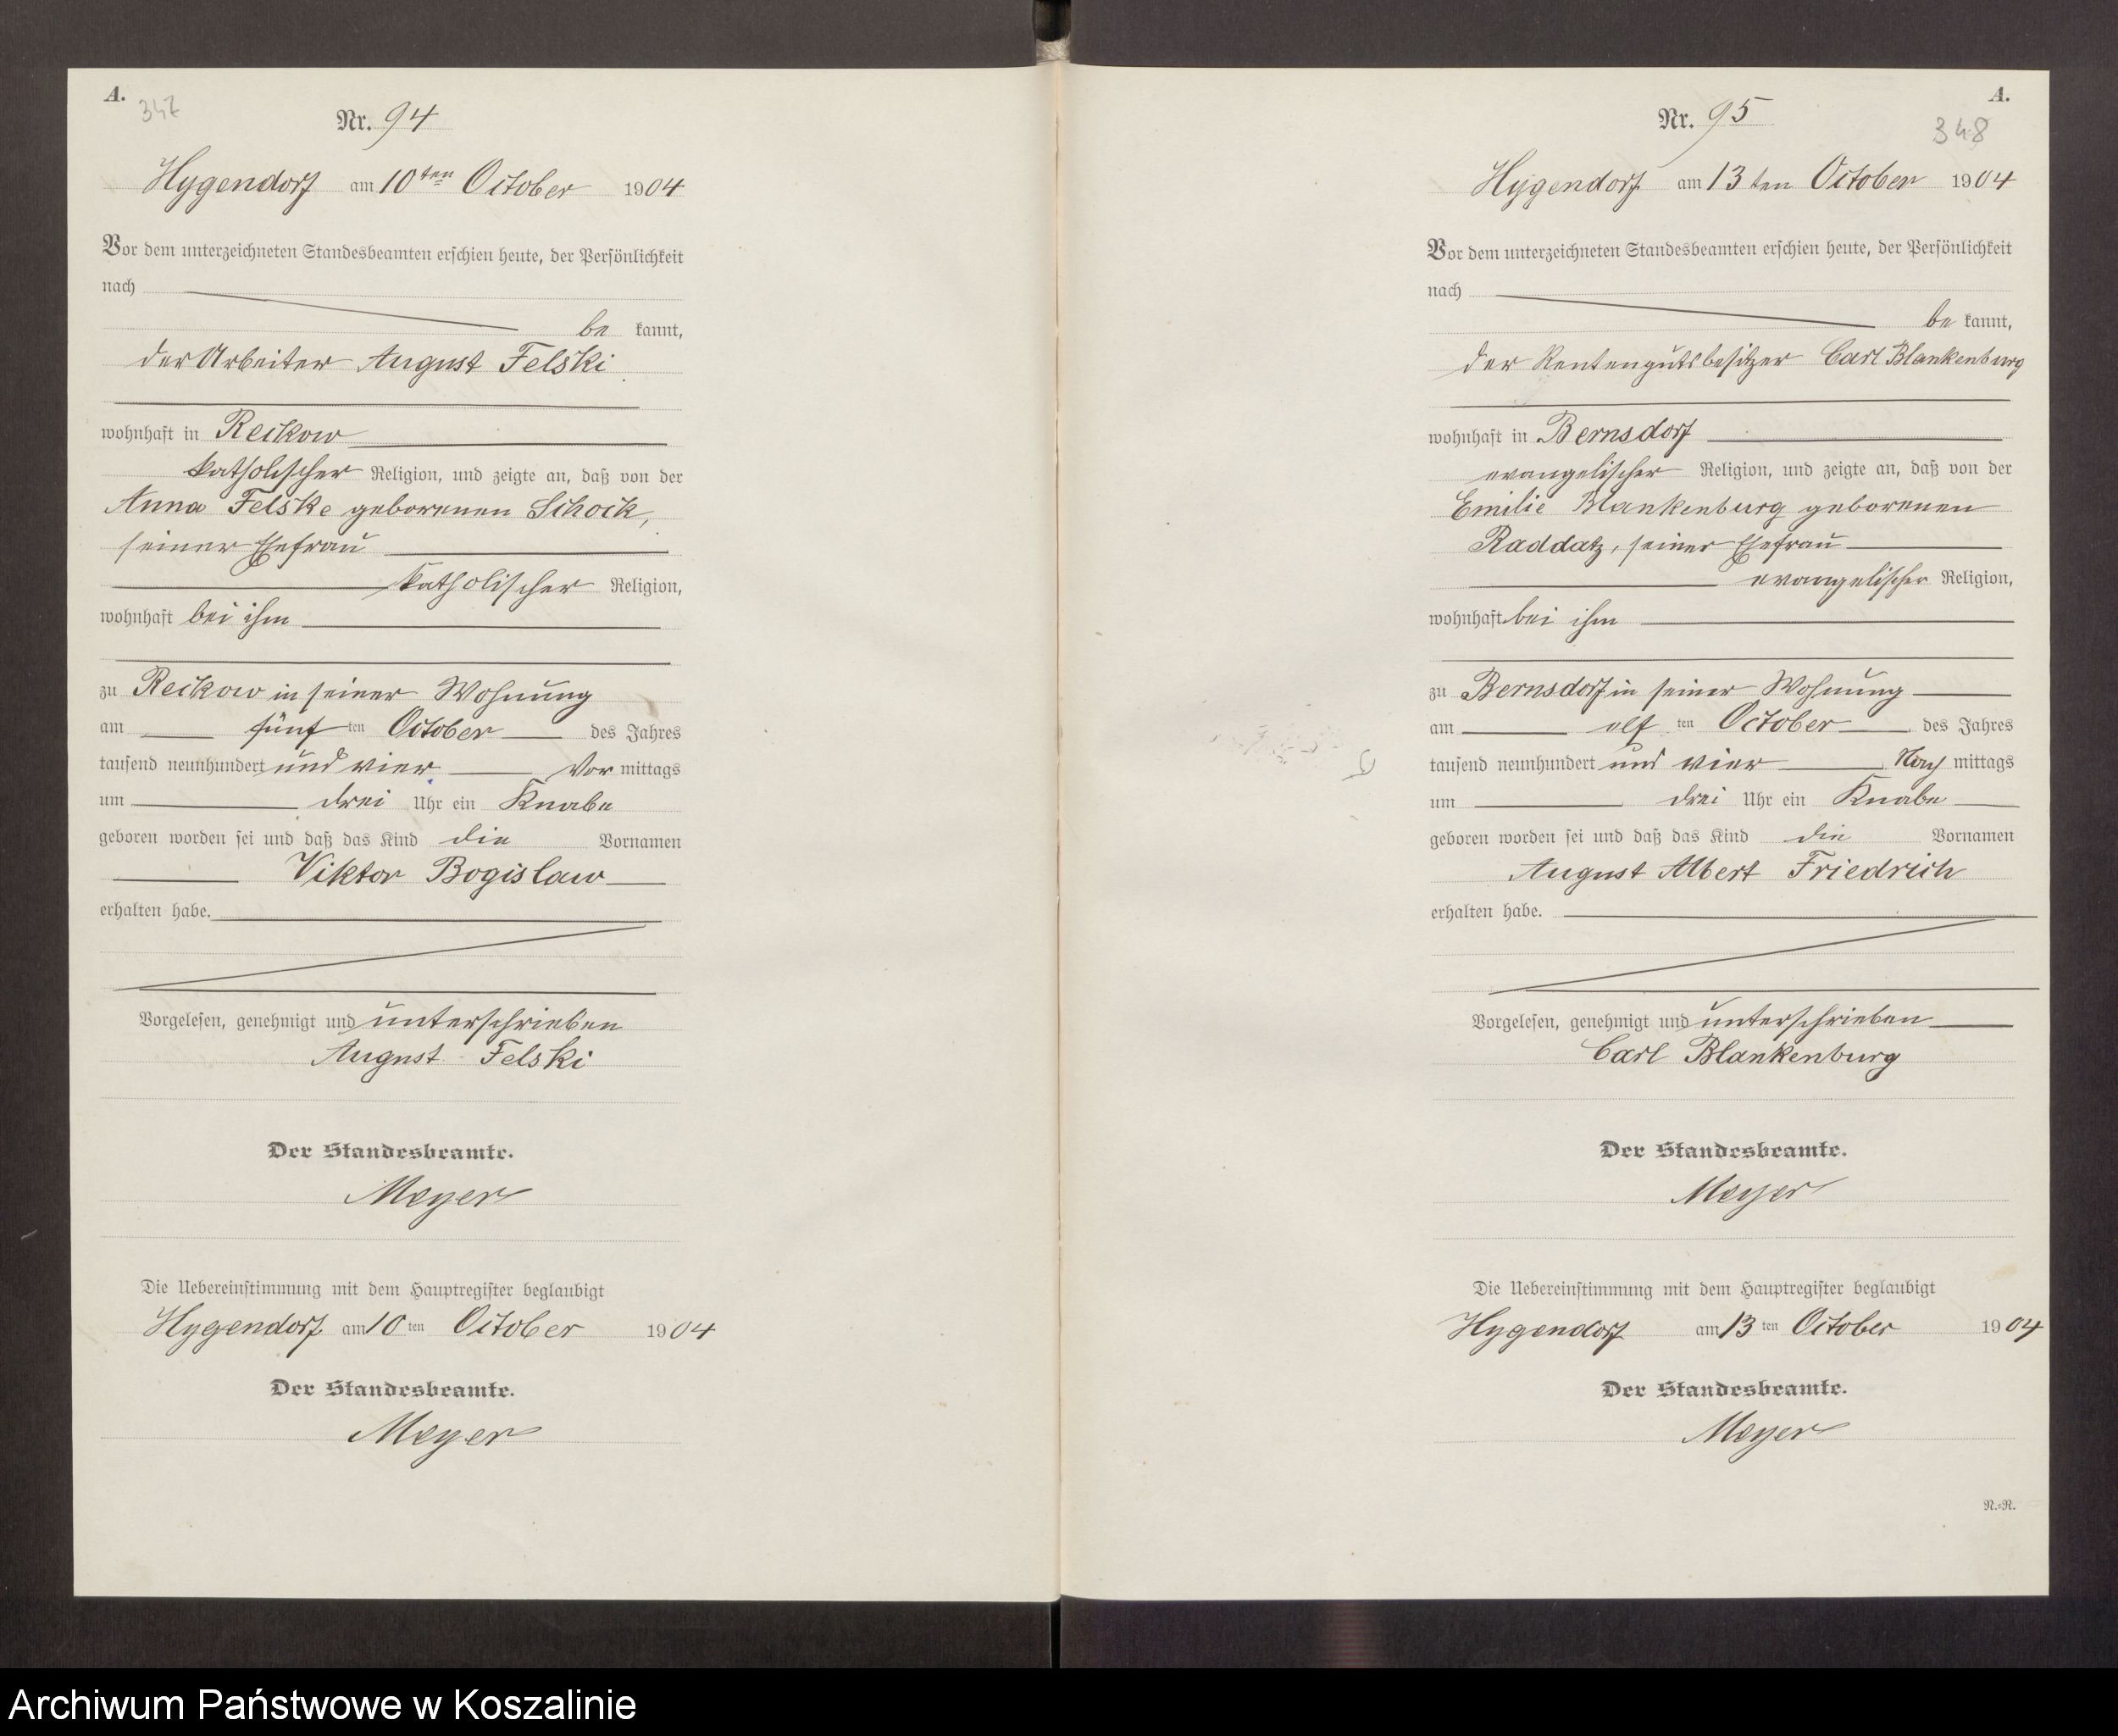 A.
347
Nr. 94
Hygendorf am 10ten October 1904
Vor dem unterzeichneten Standesbeamten erschien heute, der Persönlichkeit
nach
be kannt,
der Arbeiter August Felski
wohnhaft in Reckow
katholischer Religion, und zeigte an, daß von der
Anna Felske geborenen Schock,
seiner Ehefrau
katholischer Religion,
wohnhaft bei ihm
zu Reckow in seiner Wohnung
am fünf ten October des Jahres
tausend neunhundert und vier Vor mittags
um drei Uhr ein Knabe
geboren worden sei und daß das Kind die Vornamen
Viktor Bogislaw
erhalten habe.
Vorgelesen, genehmigt und unterschrieben
August Felski
Der Standesbeamte.
Meyer
Die Uebereinstimmung mit dem Hauptregister beglaubigt
Hygendorf am 10 ten October 1904
Der Standesbeamte.
Meyer
A.
348
Nr. 95
Hygendorf am 13 ten October 1904
Vor dem unterzeichneten Standesbeamten erschien heute, der Persönlichkeit
nach
be kannt,
der Rentengutsbesitzer Carl Blankenburg
wohnhaft in Bernsdorf
evangelischer Religion, und zeigte an, daß von der
Emilie Blankenburg geborenen
Raddatz, seiner Ehefrau
evangelischer Religion,
wohnhaft bei ihm
zu Bernsdorf in seiner Wohnung
am elf ten October des Jahres
tausend neunhundert und vier Nach mittags
um drei Uhr ein Knabe
geboren worden sei und daß das Kind die Vornamen
August Albert Friedrich
erhalten habe.
Vorgelesen, genehmigt und unterschrieben
Carl Blankenburg
Der Standesbeamte.
Meyer
Die Uebereinstimmung mit dem Hauptregister beglaubigt
Hygendorf am 13 ten October 1904
Der Standesbeamte.
Meyer
N.=R.
Archiwum Państwowe w Koszalinie